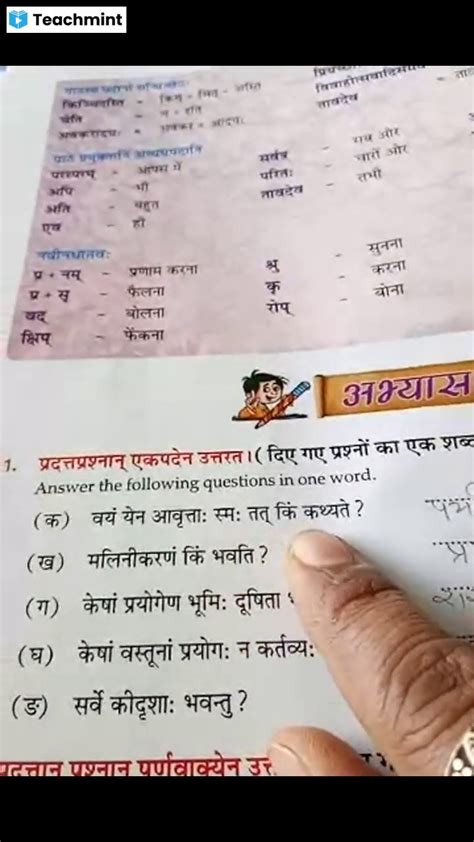 Teachmint
किञ्चिदस्ति - किम् + चित् + अस्ति
विवाहोत्सवादिसमये
चेति - च + इति
तावदेव
अवकरादयः - अवकर + आदयः
पाठे प्रयुक्तानि अव्ययपदानि
परस्परम् - आपस में
अपि - भी
अति - बहुत
एव - ही
सर्वत्र - सब ओर
परितः - चारों ओर
तावदेव - तभी
नवीनधातवः
प्र + नम् - प्रणाम करना
प्र + सृ - फैलना
वद् - बोलना
क्षिप् - फेंकना
श्रु - सुनना
कृ - करना
रोप् - बोना
अभ्यास
1. प्रदत्तप्रश्नान् एकपदेन उत्तरत। ( दिए गए प्रश्नों का एक शब्द
Answer the following questions in one word.
(क) वयं येन आवृत्ताः स्मः तत् किं कथ्यते ?
(ख) मलिनीकरणं किं भवति ?
(ग) केषां प्रयोगेण भूमिः दूषिता
(घ) केषां वस्तूनां प्रयोगः न कर्तव्यः
(ङ) सर्वे कीदृशाः भवन्तु ?
प्रदत्तान् प्रश्नान् पूर्णवाक्येन